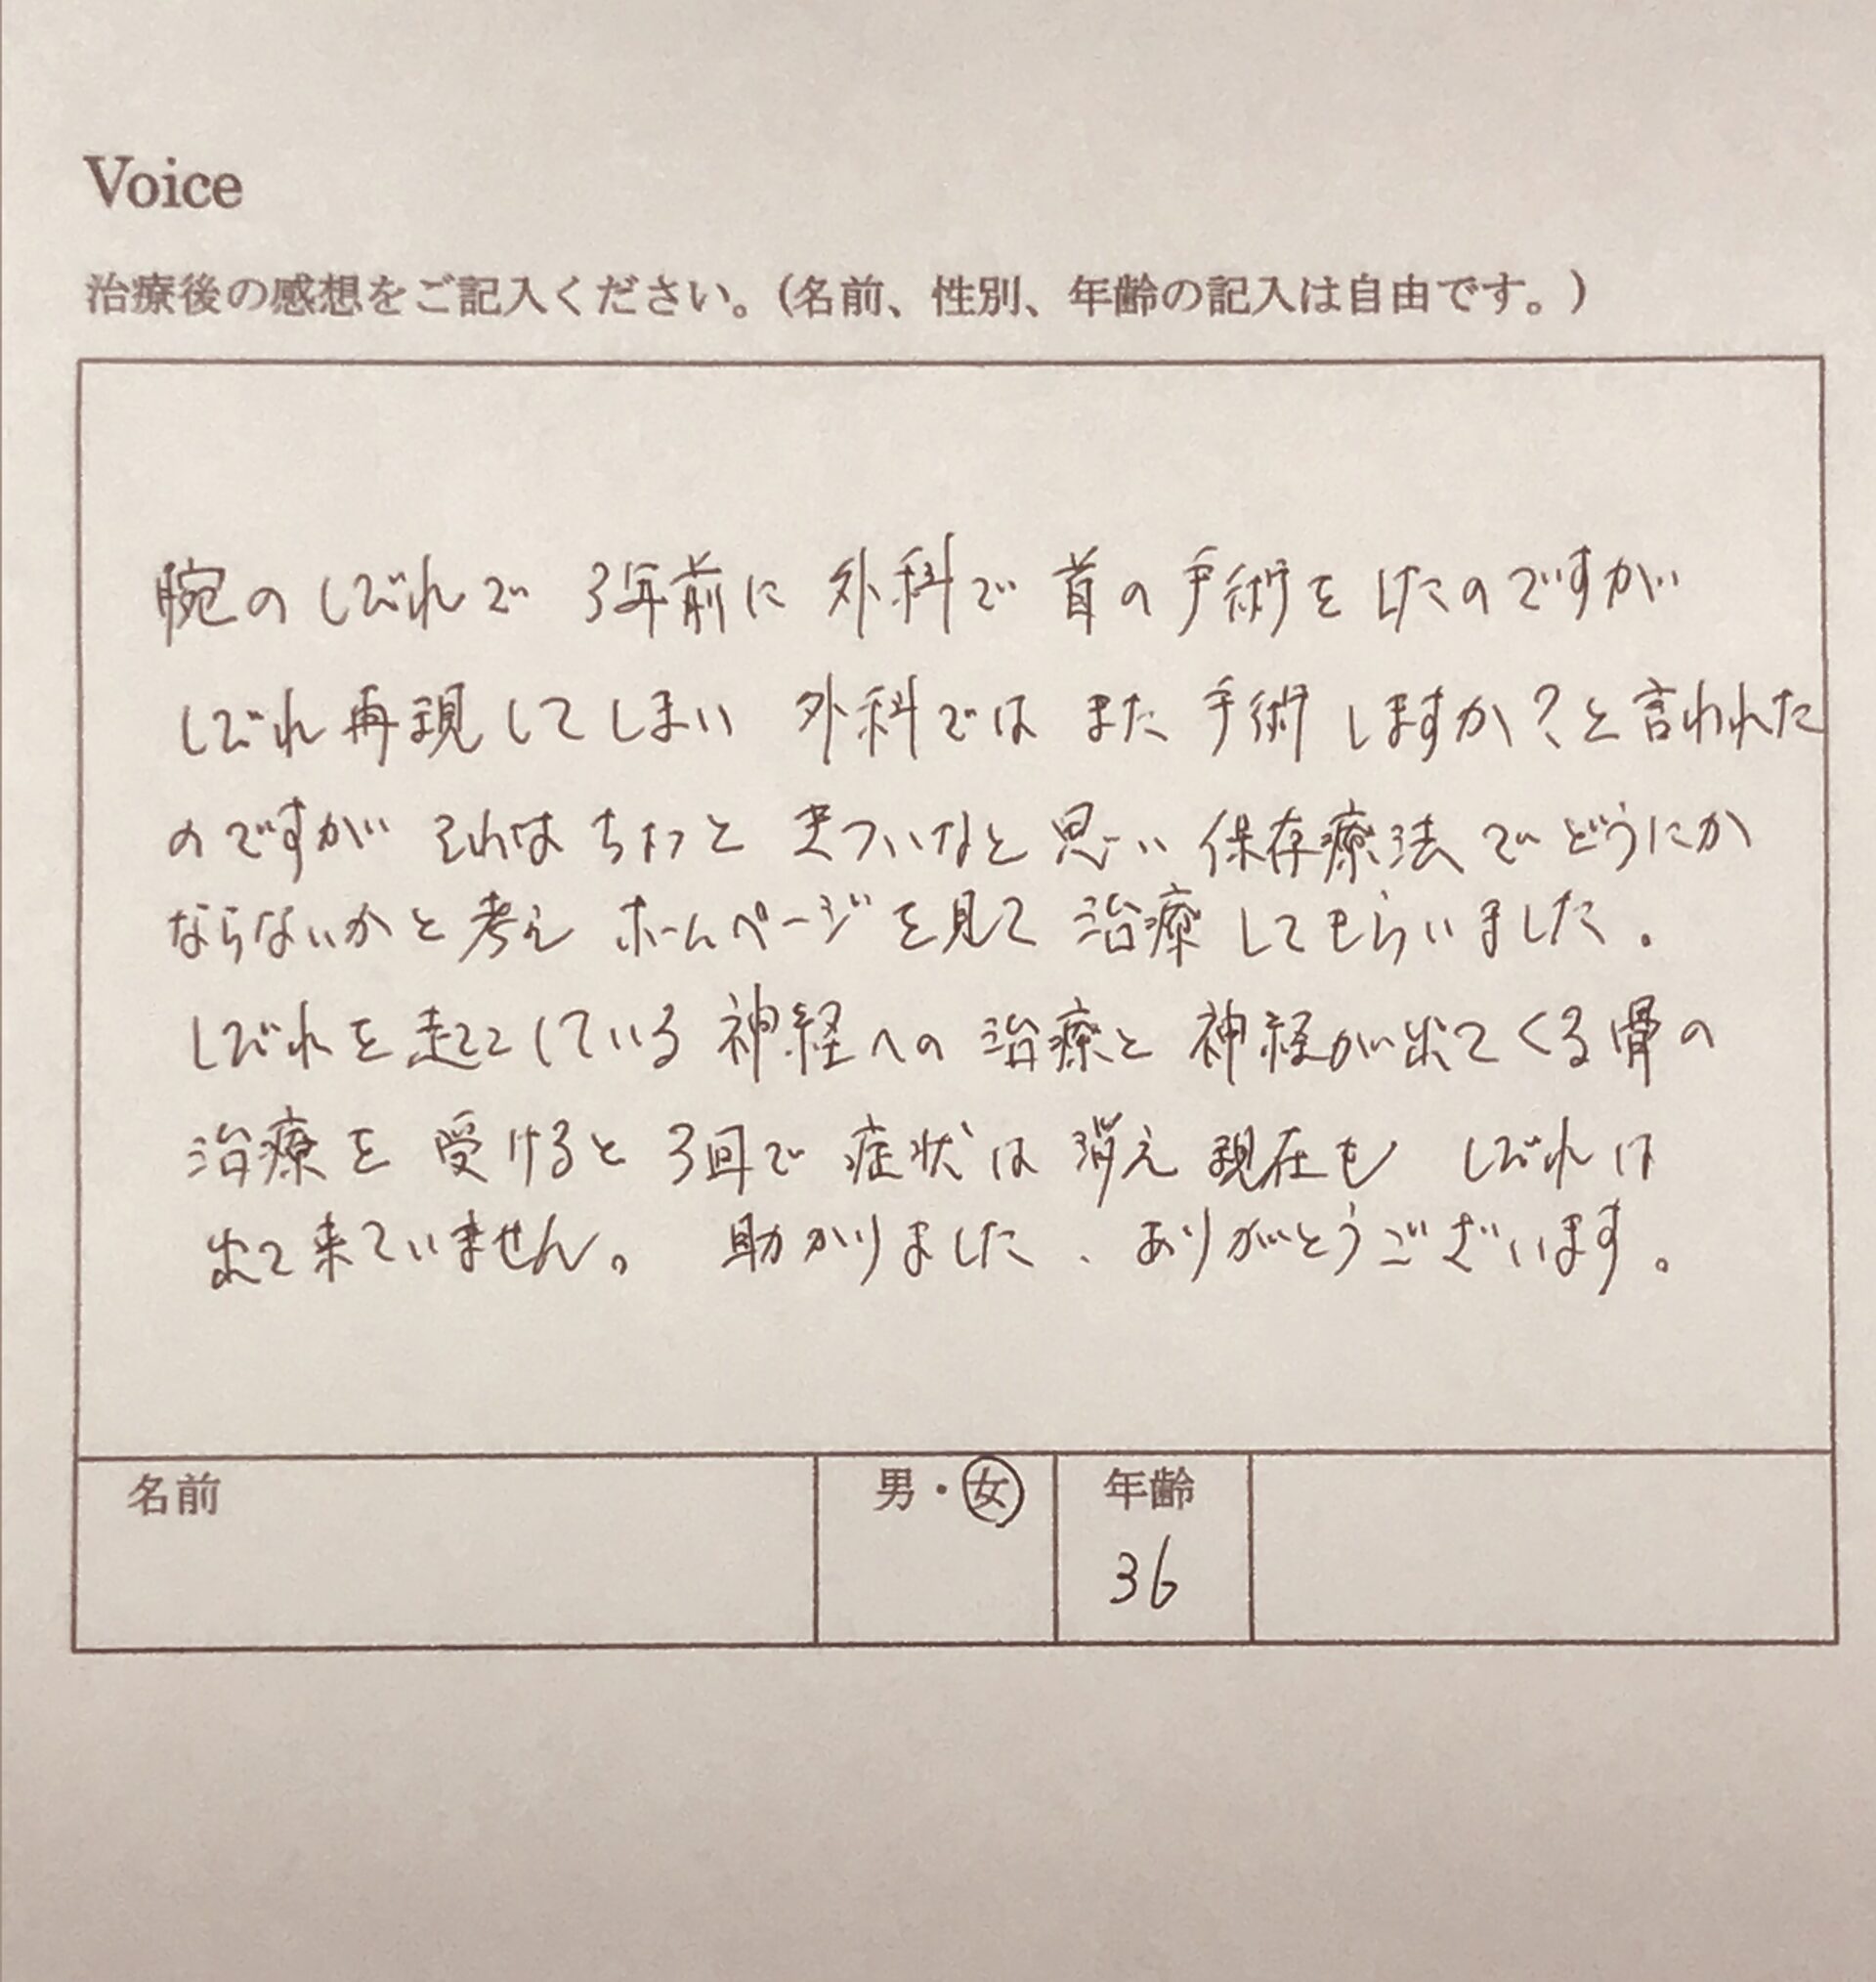 Voice
治療後の感想をご記入ください。(名前、性別、年齢の記入は自由です。)
腕のしびれで 3年前に 外科で 首の手術をしたのですが
しびれ再現してしまい 外科では また 手術 しますか?と言われた
のですが それは ちょっと きついなと 思い 保存療法で どうにか
ならないかと考え ホームページを見て 治療 してもらいました。
しびれを 起こしている 神経への 治療と 神経が出てくる骨の
治療を 受けると 3回で 症状は 消え 現在も しびれは
出て来ていません。 助かりました、ありがとうございます。
名前 男・女 年齢
36